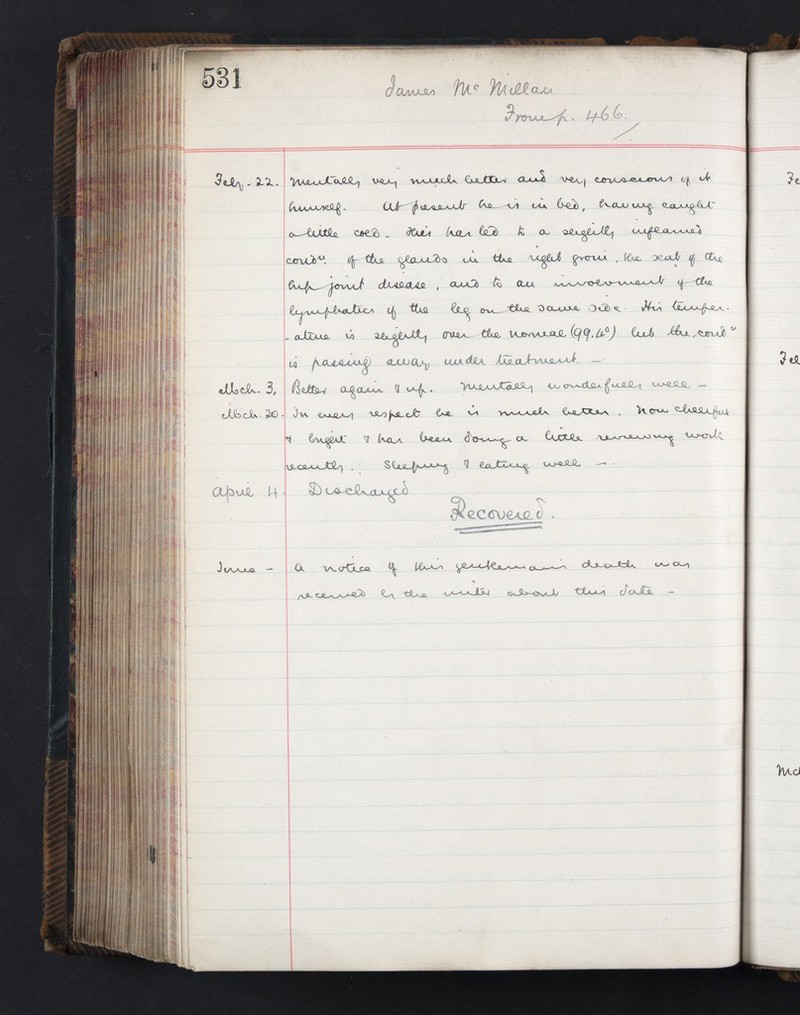 531
James Mc Millan
From p. 466.
Feby - 22. Mentally very much better and very conscious of it
himself. At present he is in bed, having caught
a little cold - This has led to a slightly inflamed
condn. of the glands in the right groin, the seat of the
hip joint disease, and to an involvement of the
lymphatics of the leg on the same side - His temper-
-ature is slightly over the normal (99.4°) but the condn
is passing away under treatment -
Mch. 3, Better again & up. Mentally wonderfully well -
Mch. 20. In every respect he is much better. Now cheerful
& bright & has been doing a little reviewing work
recently. Sleeping & eating well -
April 4. Discharged
Recovered.
June - A notice of this gentleman's death was
received by the writer about this date -
Fe
Fe
Mc